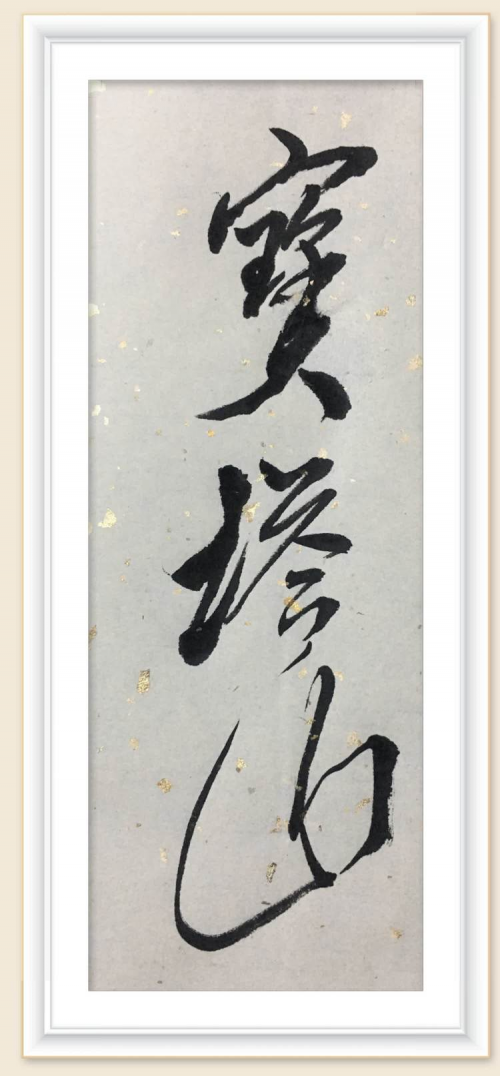 寶塔山